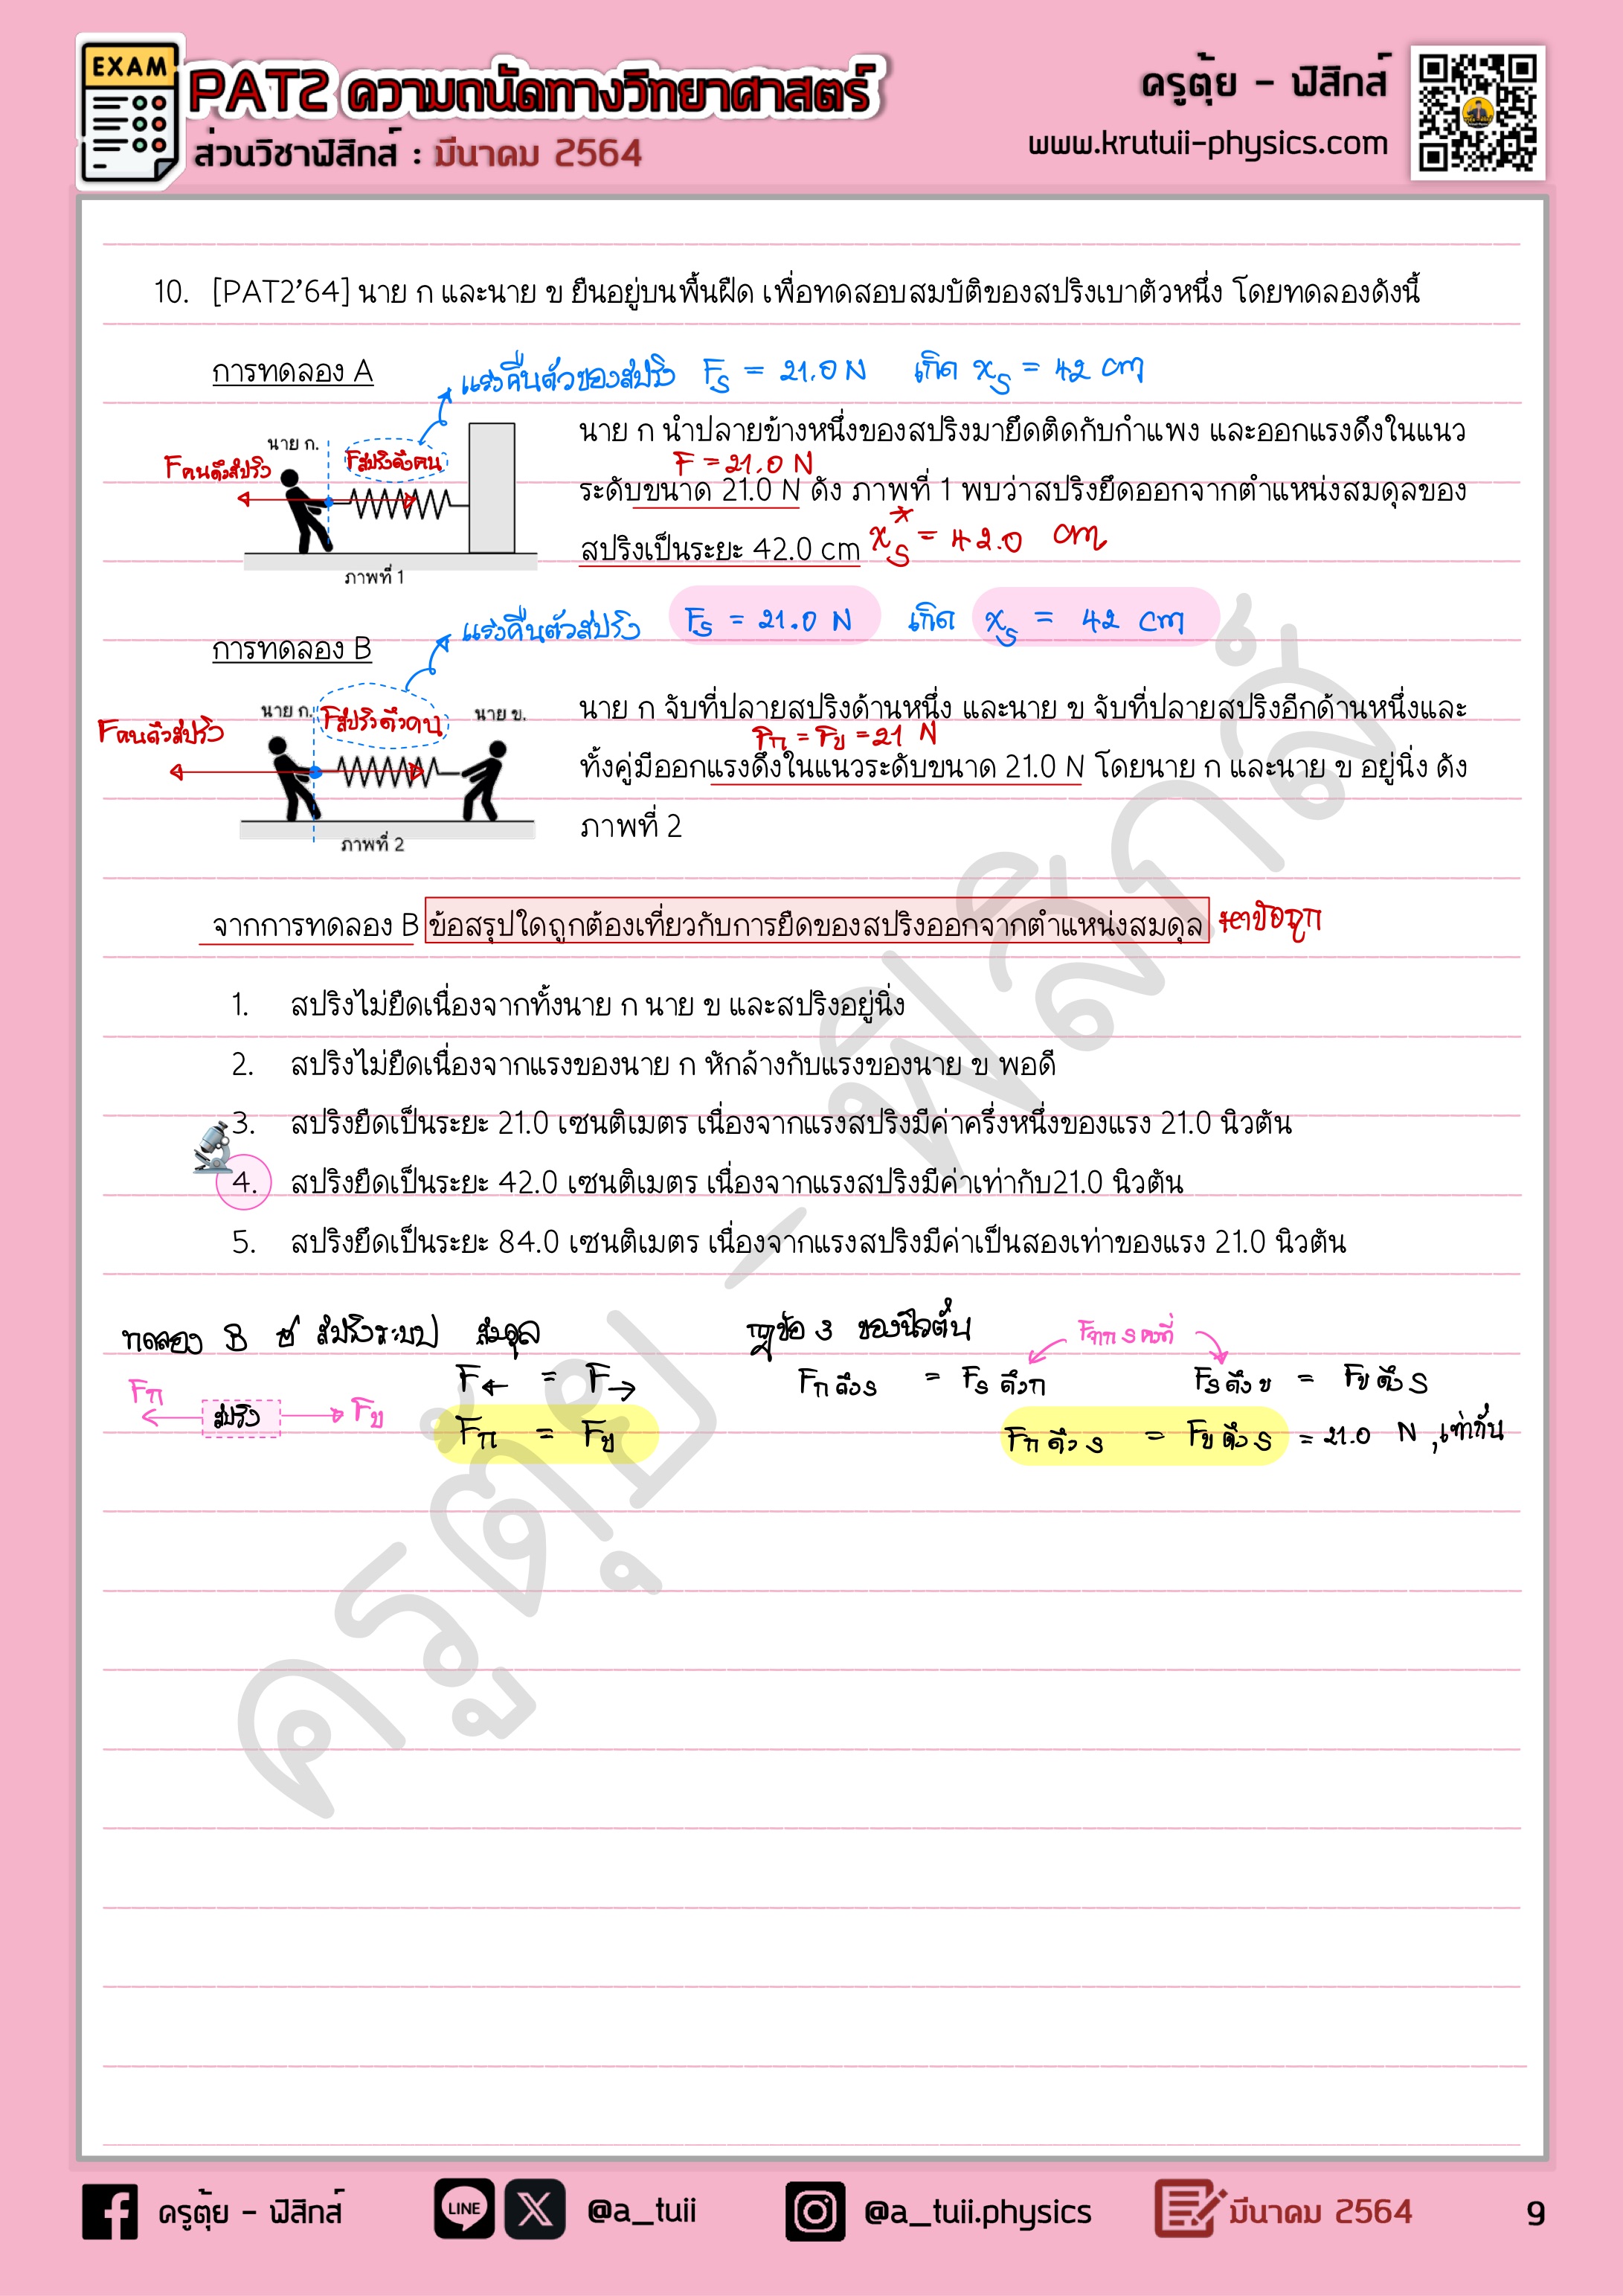 EXAM
PAT2 ความถนัดทางวิทยาศาสตร์
ส่วนวิชาฟิสิกส์ : มีนาคม 2564
ครูตุ้ย - ฟิสิกส์
www.krutuii-physics.com
10. [PAT2'64] นาย ก และนาย ข ยืนอยู่บนพื้นฝืด เพื่อทดสอบสมบัติของสปริงเบาตัวหนึ่ง โดยทดลองดังนี้
การทดลอง A
แรงคืนตัวของสปริง Fs = 21.0 N เกิด xs = 42 cm
นาย ก.
F คนดึงสปริง
F สปริงดึงคน
ภาพที่ 1
นาย ก นำปลายข้างหนึ่งของสปริงมายึดติดกับกำแพง และออกแรงดึงในแนว
F = 21.0 N
ระดับขนาด 21.0 N ดัง ภาพที่ 1 พบว่าสปริงยืดออกจากตำแหน่งสมดุลของ
สปริงเป็นระยะ 42.0 cm xs* = 42.0 cm
แรงคืนตัวสปริง Fs = 21.0 N เกิด xs = 42 cm
การทดลอง B
นาย ก.
F สปริงดึงคน
นาย ข.
F คนดึงสปริง
ภาพที่ 2
นาย ก จับที่ปลายสปริงด้านหนึ่ง และนาย ข จับที่ปลายสปริงอีกด้านหนึ่งและ
Fก = Fข = 21 N
ทั้งคู่มีออกแรงดึงในแนวระดับขนาด 21.0 N โดยนาย ก และนาย ข อยู่นิ่ง ดัง
ภาพที่ 2
จากการทดลอง B ข้อสรุปใดถูกต้องเกี่ยวกับการยืดของสปริงออกจากตำแหน่งสมดุล หาข้อถูก
1. สปริงไม่ยืดเนื่องจากทั้งนาย ก นาย ข และสปริงอยู่นิ่ง
2. สปริงไม่ยืดเนื่องจากแรงของนาย ก หักล้างกับแรงของนาย ข พอดี
3. สปริงยืดเป็นระยะ 21.0 เซนติเมตร เนื่องจากแรงสปริงมีค่าครึ่งหนึ่งของแรง 21.0 นิวตัน
4. สปริงยืดเป็นระยะ 42.0 เซนติเมตร เนื่องจากแรงสปริงมีค่าเท่ากับ21.0 นิวตัน
5. สปริงยืดเป็นระยะ 84.0 เซนติเมตร เนื่องจากแรงสปริงมีค่าเป็นสองเท่าของแรง 21.0 นิวตัน
ทดลอง B สปริงระบบ สมดุล
Fก สปริง Fข
F← = F→
Fก = Fข
กฎข้อ 3 ของนิวตัน
F จาก s คงที่
Fก ดึง s = Fs ดึง ก Fs ดึง ข = Fข ดึง s
Fก ดึง s = Fข ดึง s = 21.0 N , เท่ากัน
ครูตุ้ย - ฟิสิกส์
ครูตุ้ย - ฟิสิกส์
LINE
@a_tuii
@a_tuii.physics
มีนาคม 2564
9